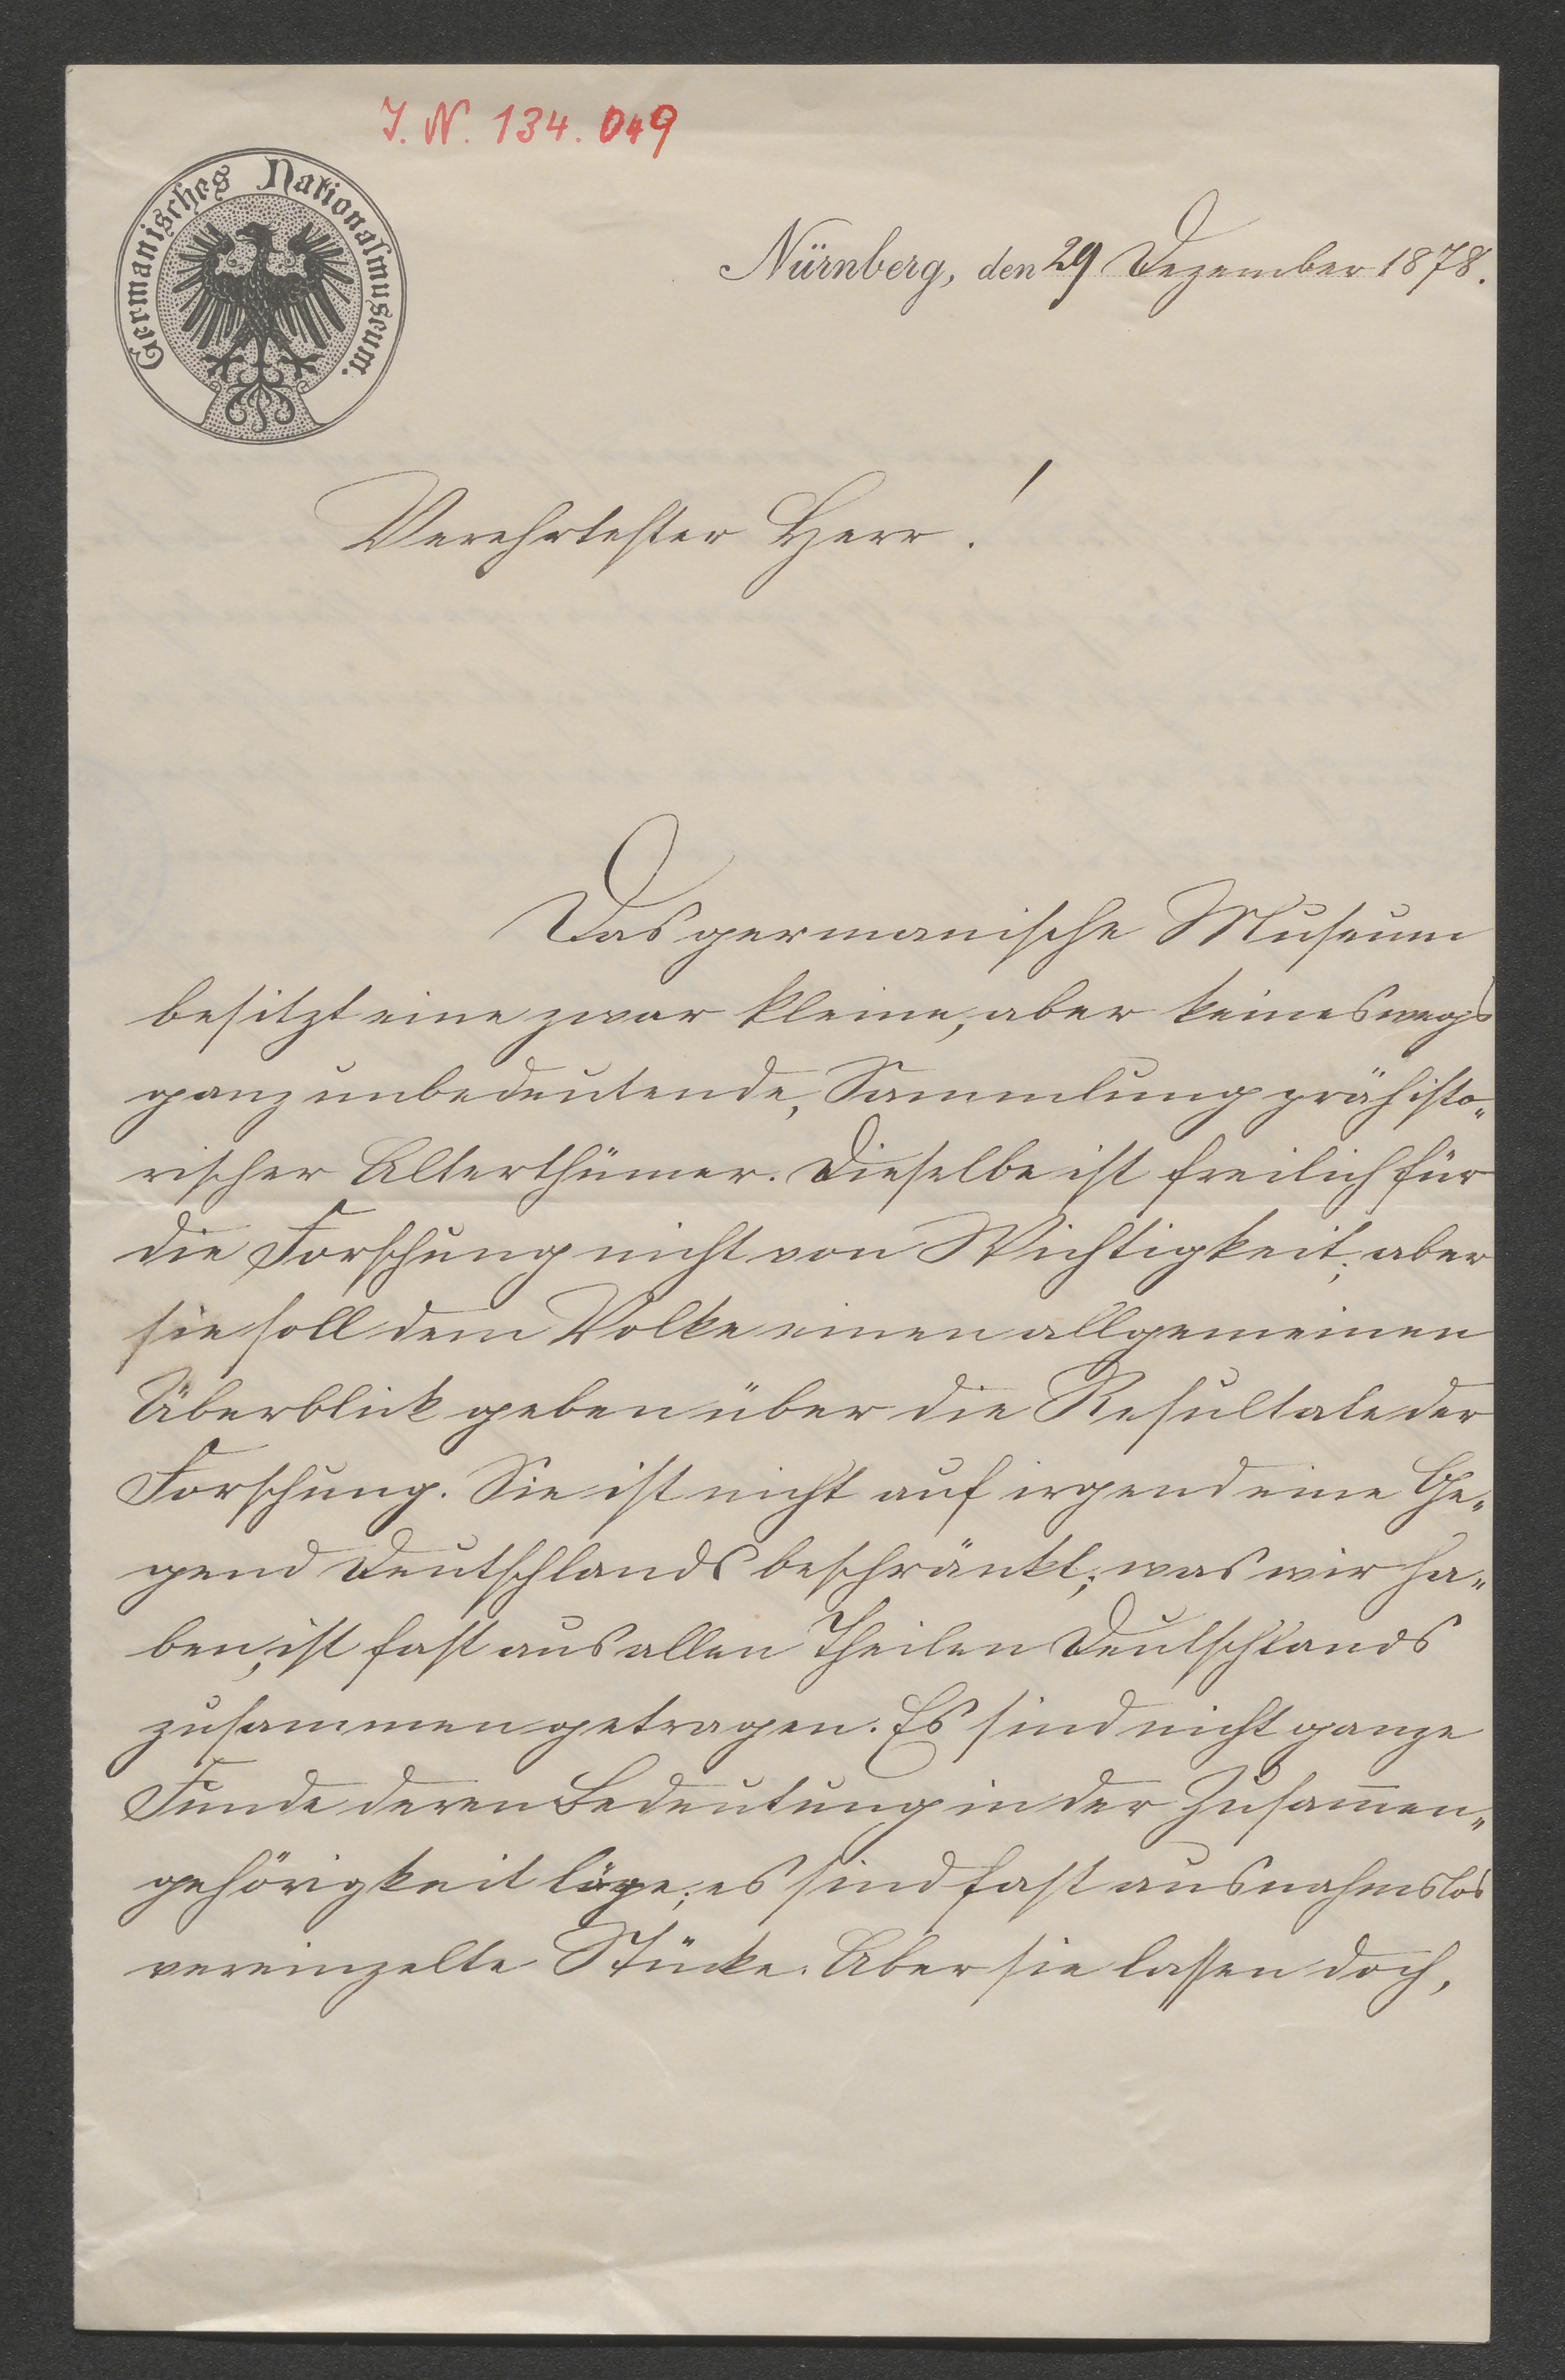 I. N. 134.049
Germanisches Nationalmuseum.
Nürnberg, den 29 Dezember 1878.
Verehrtester Herr!
Das germanische Museum
besitzt eine zwar kleine, aber keineswegs
ganz unbedeutende, Sammlung prähisto„
rischer Alterthümer. Dieselbe ist freilich für
die Forschung nicht von Wichtigkeit; aber
sie soll dem Volke einen allgemeinen
Überblick geben über die Resultate der
Forschung. Sie ist nicht auf irgend eine Ge„
gend Deutschlands beschränkt; was wir ha„
ben, ist fast aus allen Theilen Deutschlands
zusammengetragen. Es sind nicht ganze
Funde deren Bedeutung in der Zusam̅en„
gehörigkeit läge; es sind fast ausnahmslos
vereinzelte Stücke. Aber sie lassen doch,